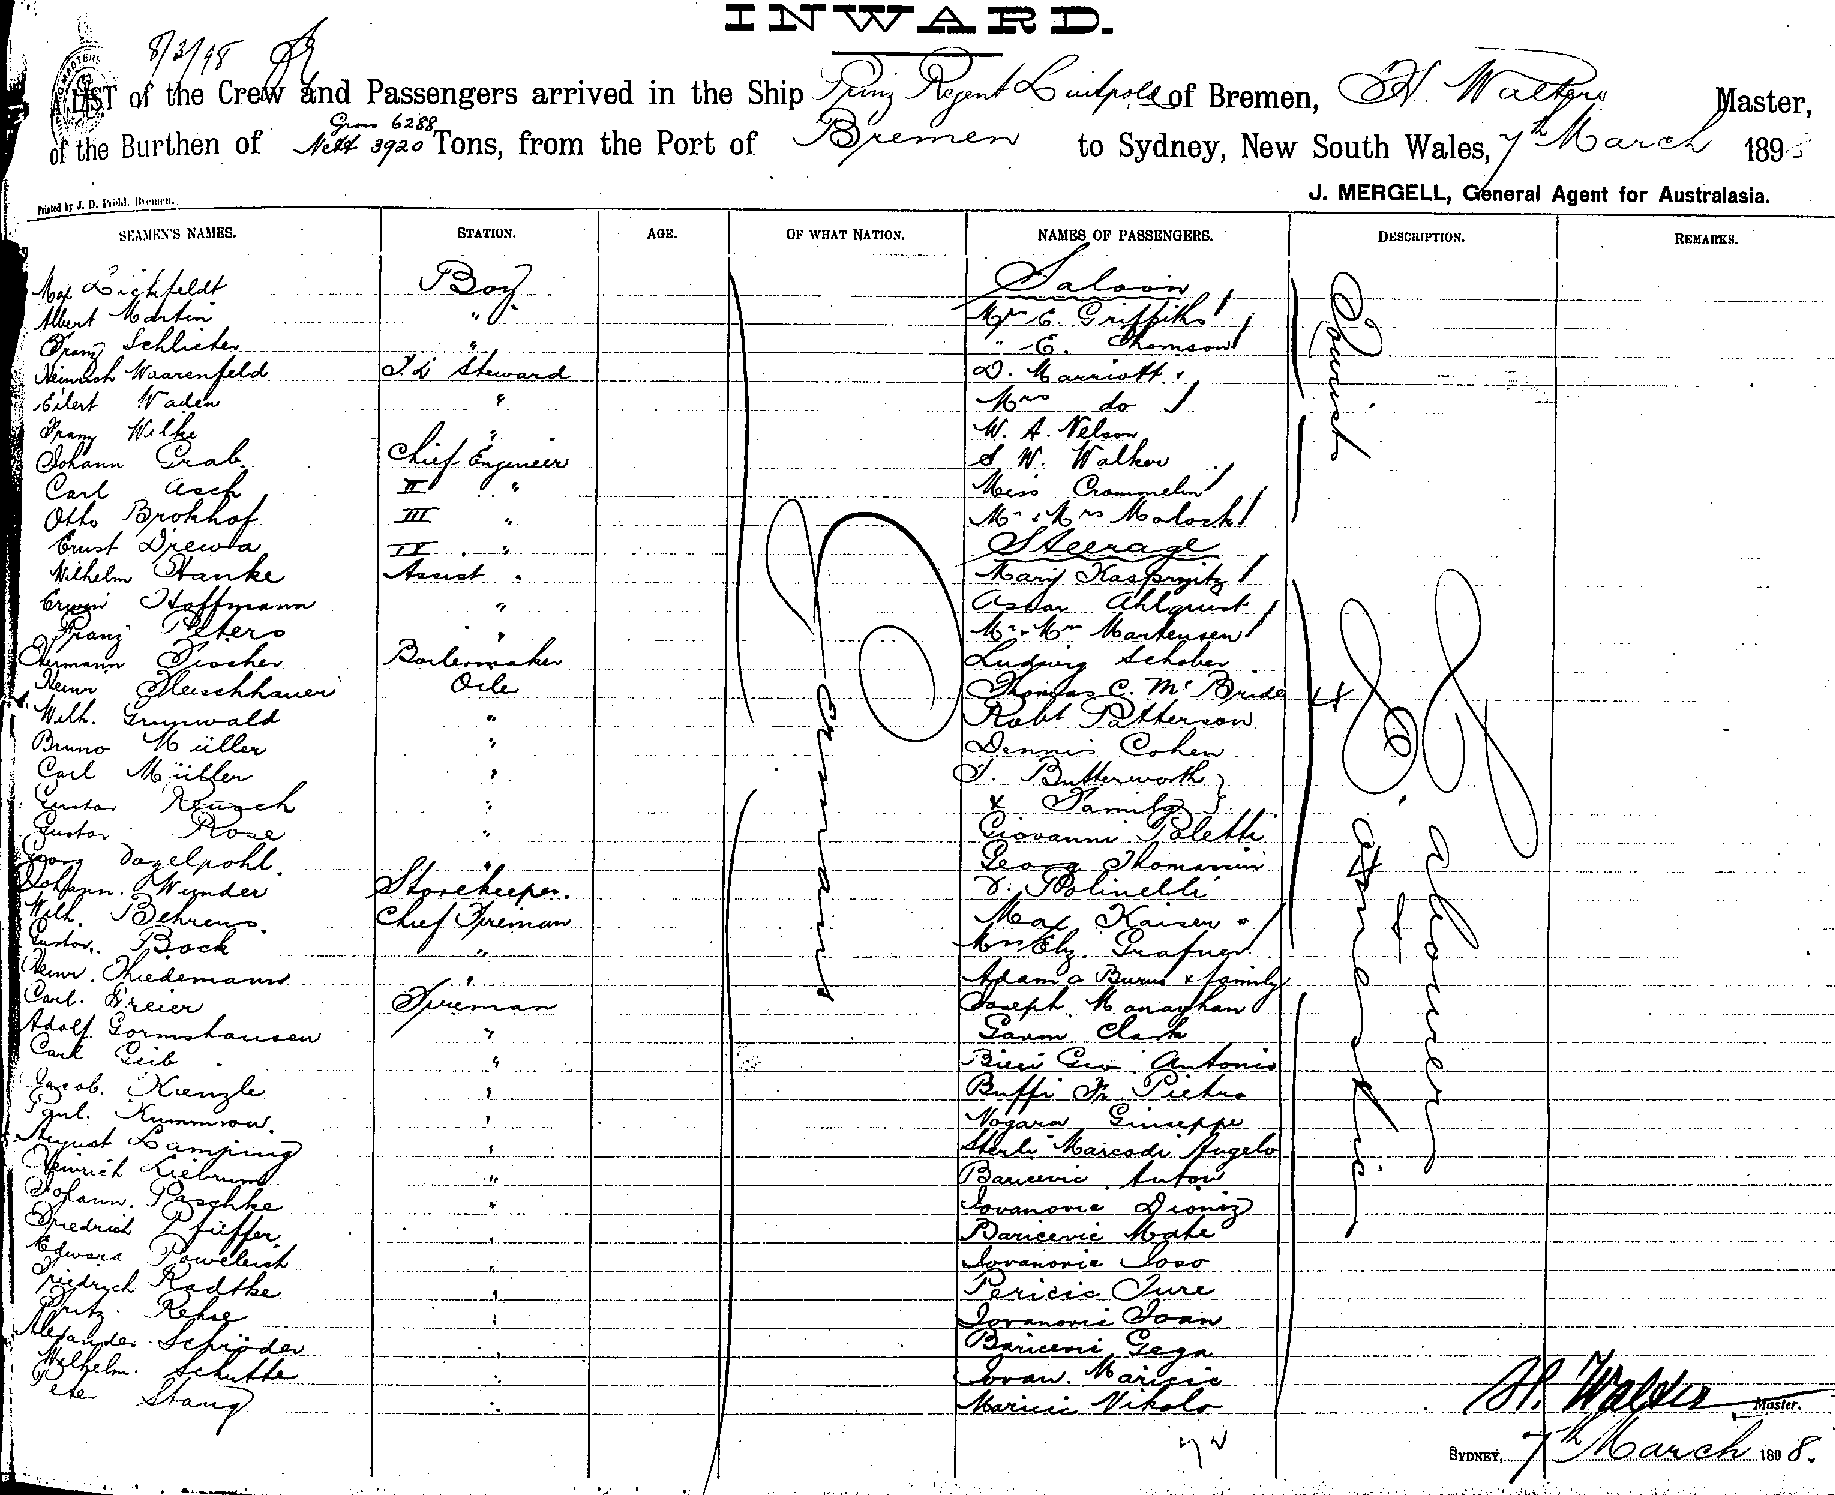 INWARD.
8/3/98
LIST of the Crew and Passengers arrived in the Ship Prinz Regent Luitpold of Bremen, H. Walter Master,
Gross 6288
of the Burthen of Nett 3920 Tons, from the Port of Bremen to Sydney, New South Wales, 7th March 1898
J. MERGELL, General Agent for Australasia.
Printed by J. D. Pohld. Bremen.
SEAMEN'S NAMES. STATION. AGE. OF WHAT NATION. NAMES OF PASSENGERS. DESCRIPTION. REMARKS.
Max Lichfeldt Boy Saloon
Albert Martin " Mr. C. Griffiths
Franz Schlichter " " E. Thomson
Heinrich Waarenfeld Id Steward D. Marriott
Eilert Waden " Mrs do
Franz Wilke " W. A. Nelson
Johann Grab Chief Engineer S W. Walker
Carl Asch II " Miss Crommelin
Otto Brokhof III " Mr & Mrs Moloch
Ernst Drewa IV " Steerage
Wilhelm Hanke Assist " Mary
Erwin Hoffmann " Ahlquist
Franz Peters " Mr & Mrs Martensen
Hermann Fischer Boilermaker Ludwig Schober
Heinr Fleischhauer Oile Thomas C. Mc Bride
Wilh. Grunwald " Robt Patterson
Bruno Müller " Dennis Cohen
Carl Müller " T. Butterworth
Gustav Reusch " & Family
Gustav Rose " Giovanni Poletti
Georg Vagelpohl. " Georg
Johann. Wunder Storekeeper. Polinelli
Wilh. Behrens. Chief Fireman Max Kaiser
Gustav. Bock " Mrs Elz. Grafner
Heinr. Thiedemann " Adam Burns & family
Carl. Freier Fireman Joseph Monaghan
Adolf Gormshausen " Gavin Clark
Carl Geib " Gio Antonio
Jacob. Kienzle " Buffi Pietro
Paul. Kummrow. " Nogara Giuseppe
August Lamping " Sterli Marcodi Angelo
Heinrich Liebrum " Baricevic Anton
Johann. Paschke " Iovanovic Dioniz
Friedrich Pfuffer " Baricevic Mate
Edward Poweleish " Iovanovic Joso
Friedrich Radtke " Pericic Jure
Fritz. Rehse " Iovanovic Ivan
Alexander Schröder " Baricevic Gega
Wilhelm. Schutte " Iovan. Maricic
Stang " Maricic Nikola
Germans
Tourists
Domestics
& Labourers
H. Walter Master.
SYDNEY, 7th March 1898.